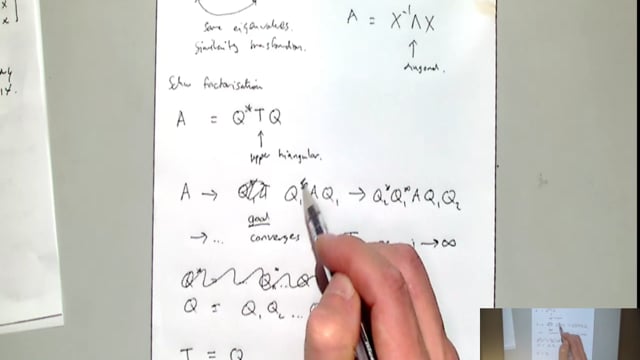 same eigenvalues.
similarity transformation.
A = X⁻¹ Λ X
↑
diagonal.
Schur factorisation
A = Q* T Q
↑
upper triangular.
A → Q₁* A Q₁ → Q₂* Q₁* A Q₁ Q₂
good
→ ... converges → ∞
Q = Q₁ Q₂ ...
T = Q